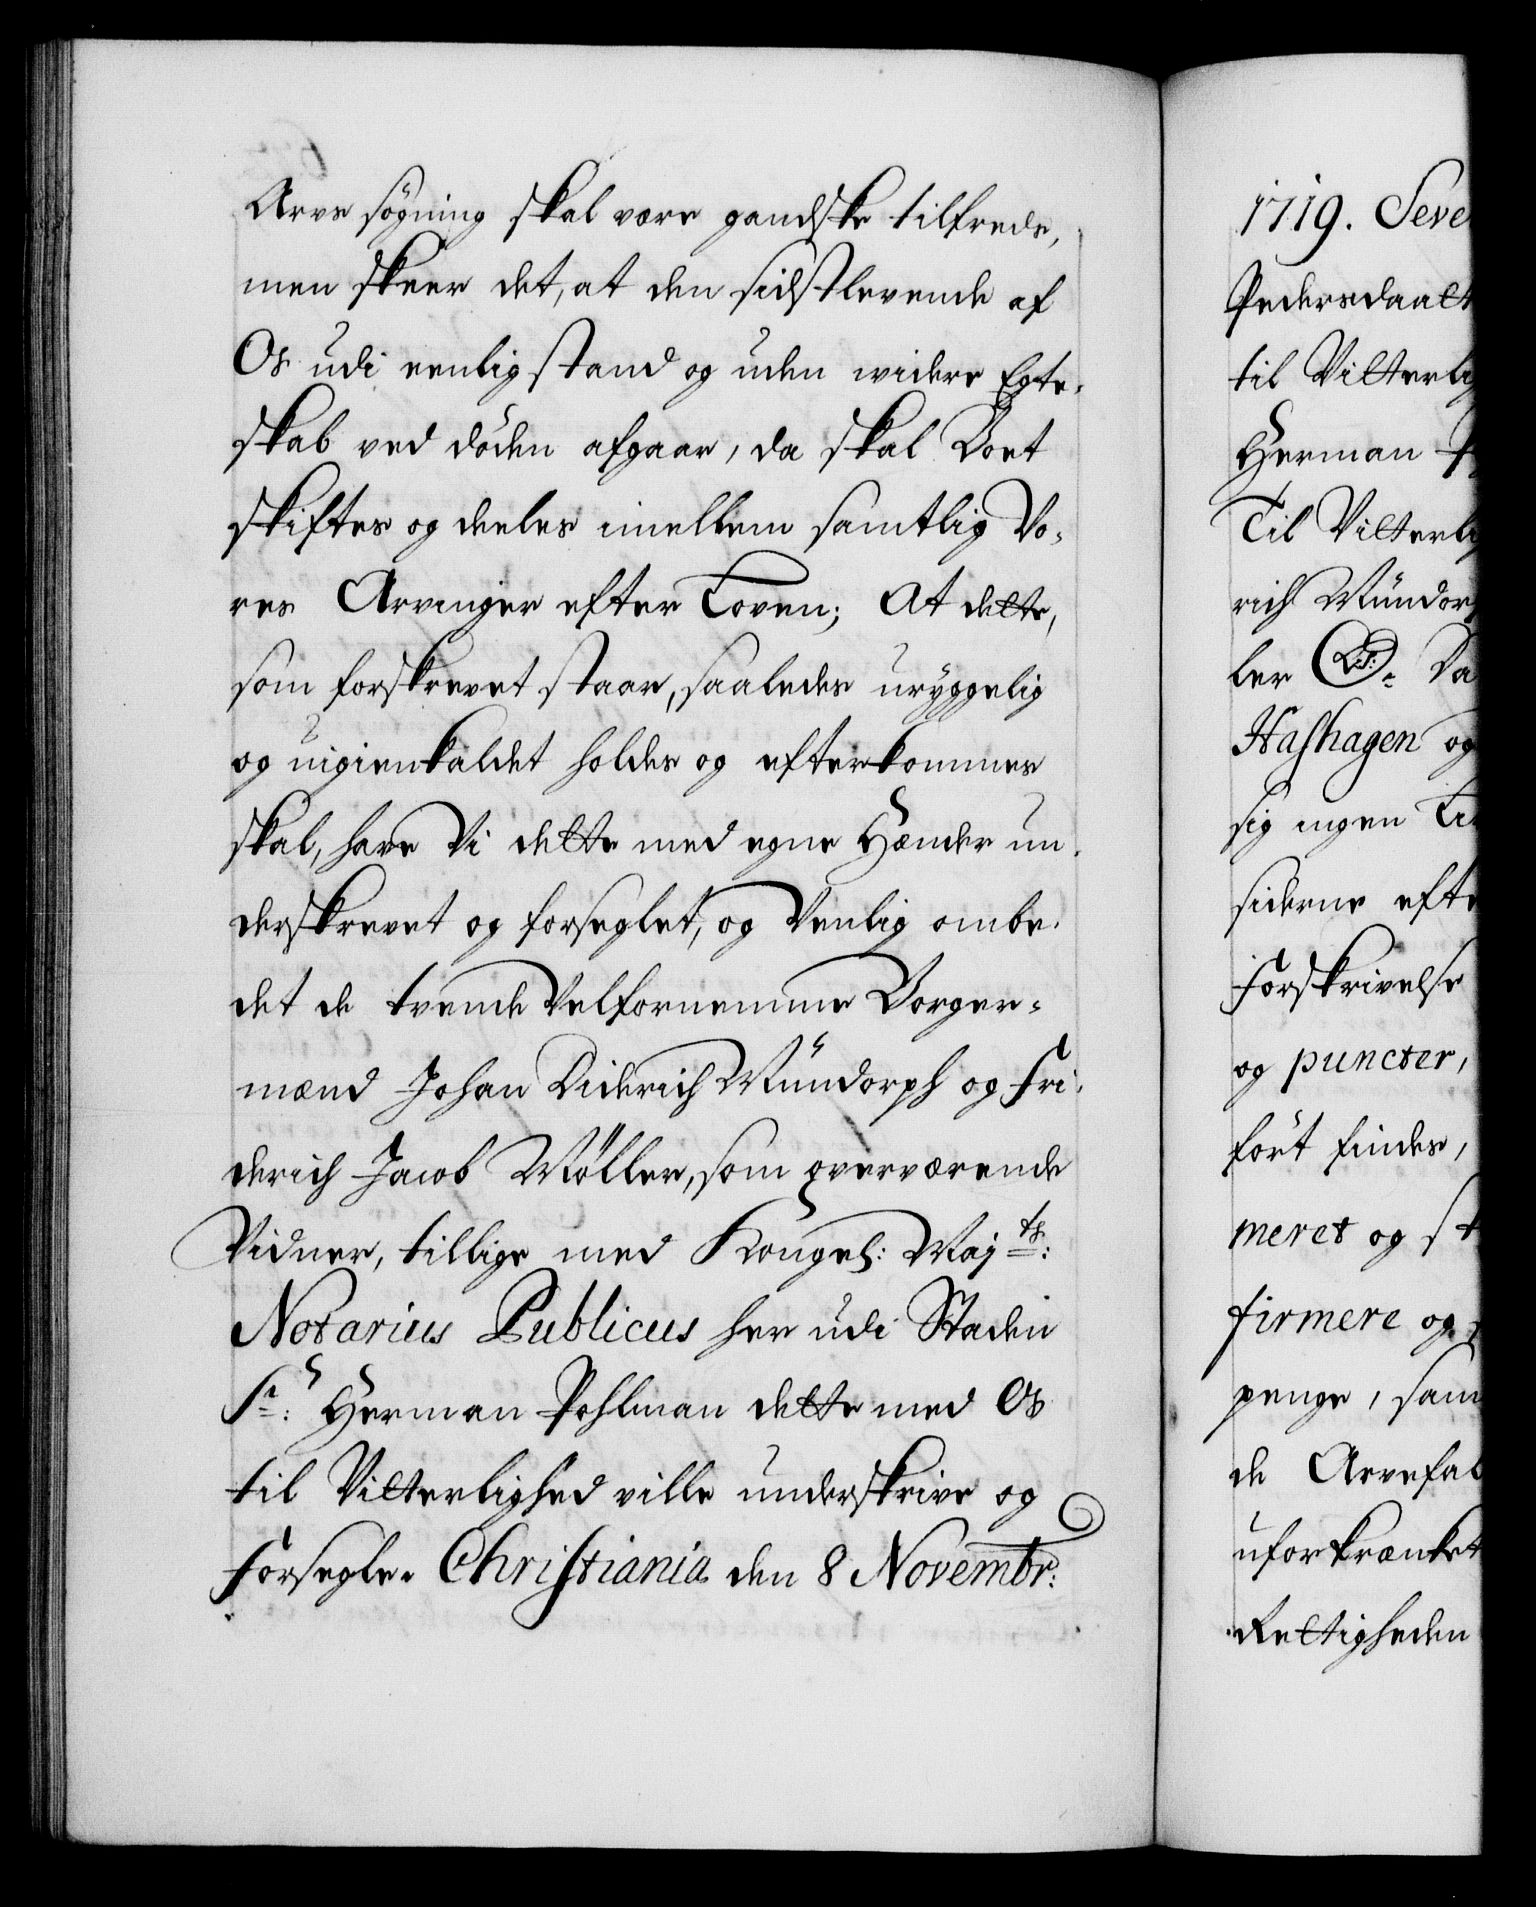 Arve søgning skal være gandske tilfreds,
men skeer det, at den sidstlevende af
Os udi eenlig stand og uden widere Egte-
skab ved döden afgaar, da skal Boet
skiftes og deeles imellem samtlig Vo-
res Arvinger efter Loven; At dette,
som forskrevet staar, saaledes uryggelig
og uigienkaldet holdes og efterkommes
skal, have Vi dette med egne Hænder un-
derskrevet og forseglet, og Venlig ombe-
det de tvende Velfornemme Borger-
mænd Johan Diderich Mündorph og Fri-
derich Jacob Møller, som overværende
Vidner, tillige med Kongel: Maj:ts:
Notarius Publicus her udi Staden
Sr: Herman Pohlman dette med Os
til Vitterlighed ville underskrive og
Forsegle. Christiania den 8 Novembr:
1719. Seve
Pedersdaatt
til Vitterlig
Herman P
Til Vitterlig
rich Mündorp
ler L.S. Da
Hashagen og
sig ingen Li
siderne efte
Forskrivelse
og puncter,
fört findes,
meret og st
firmere og
penge, sam
de Arvefal
uforkrænket
Rettigheden